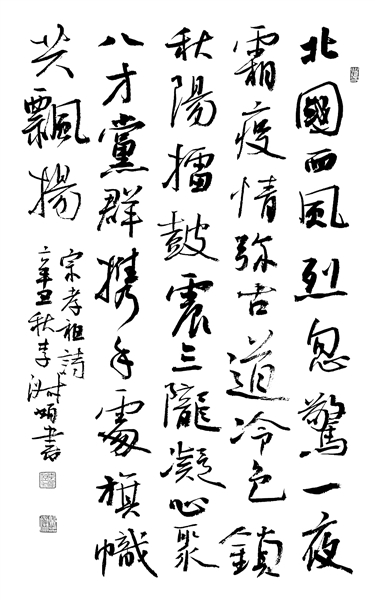 北國西風烈忽驚一夜
霜疫情弥古道冷色鎖
秋陽擂鼓震三隴凝心聚
八方黨群携手處旗幟
共飄揚
宗孝祖詩
辛丑秋李書